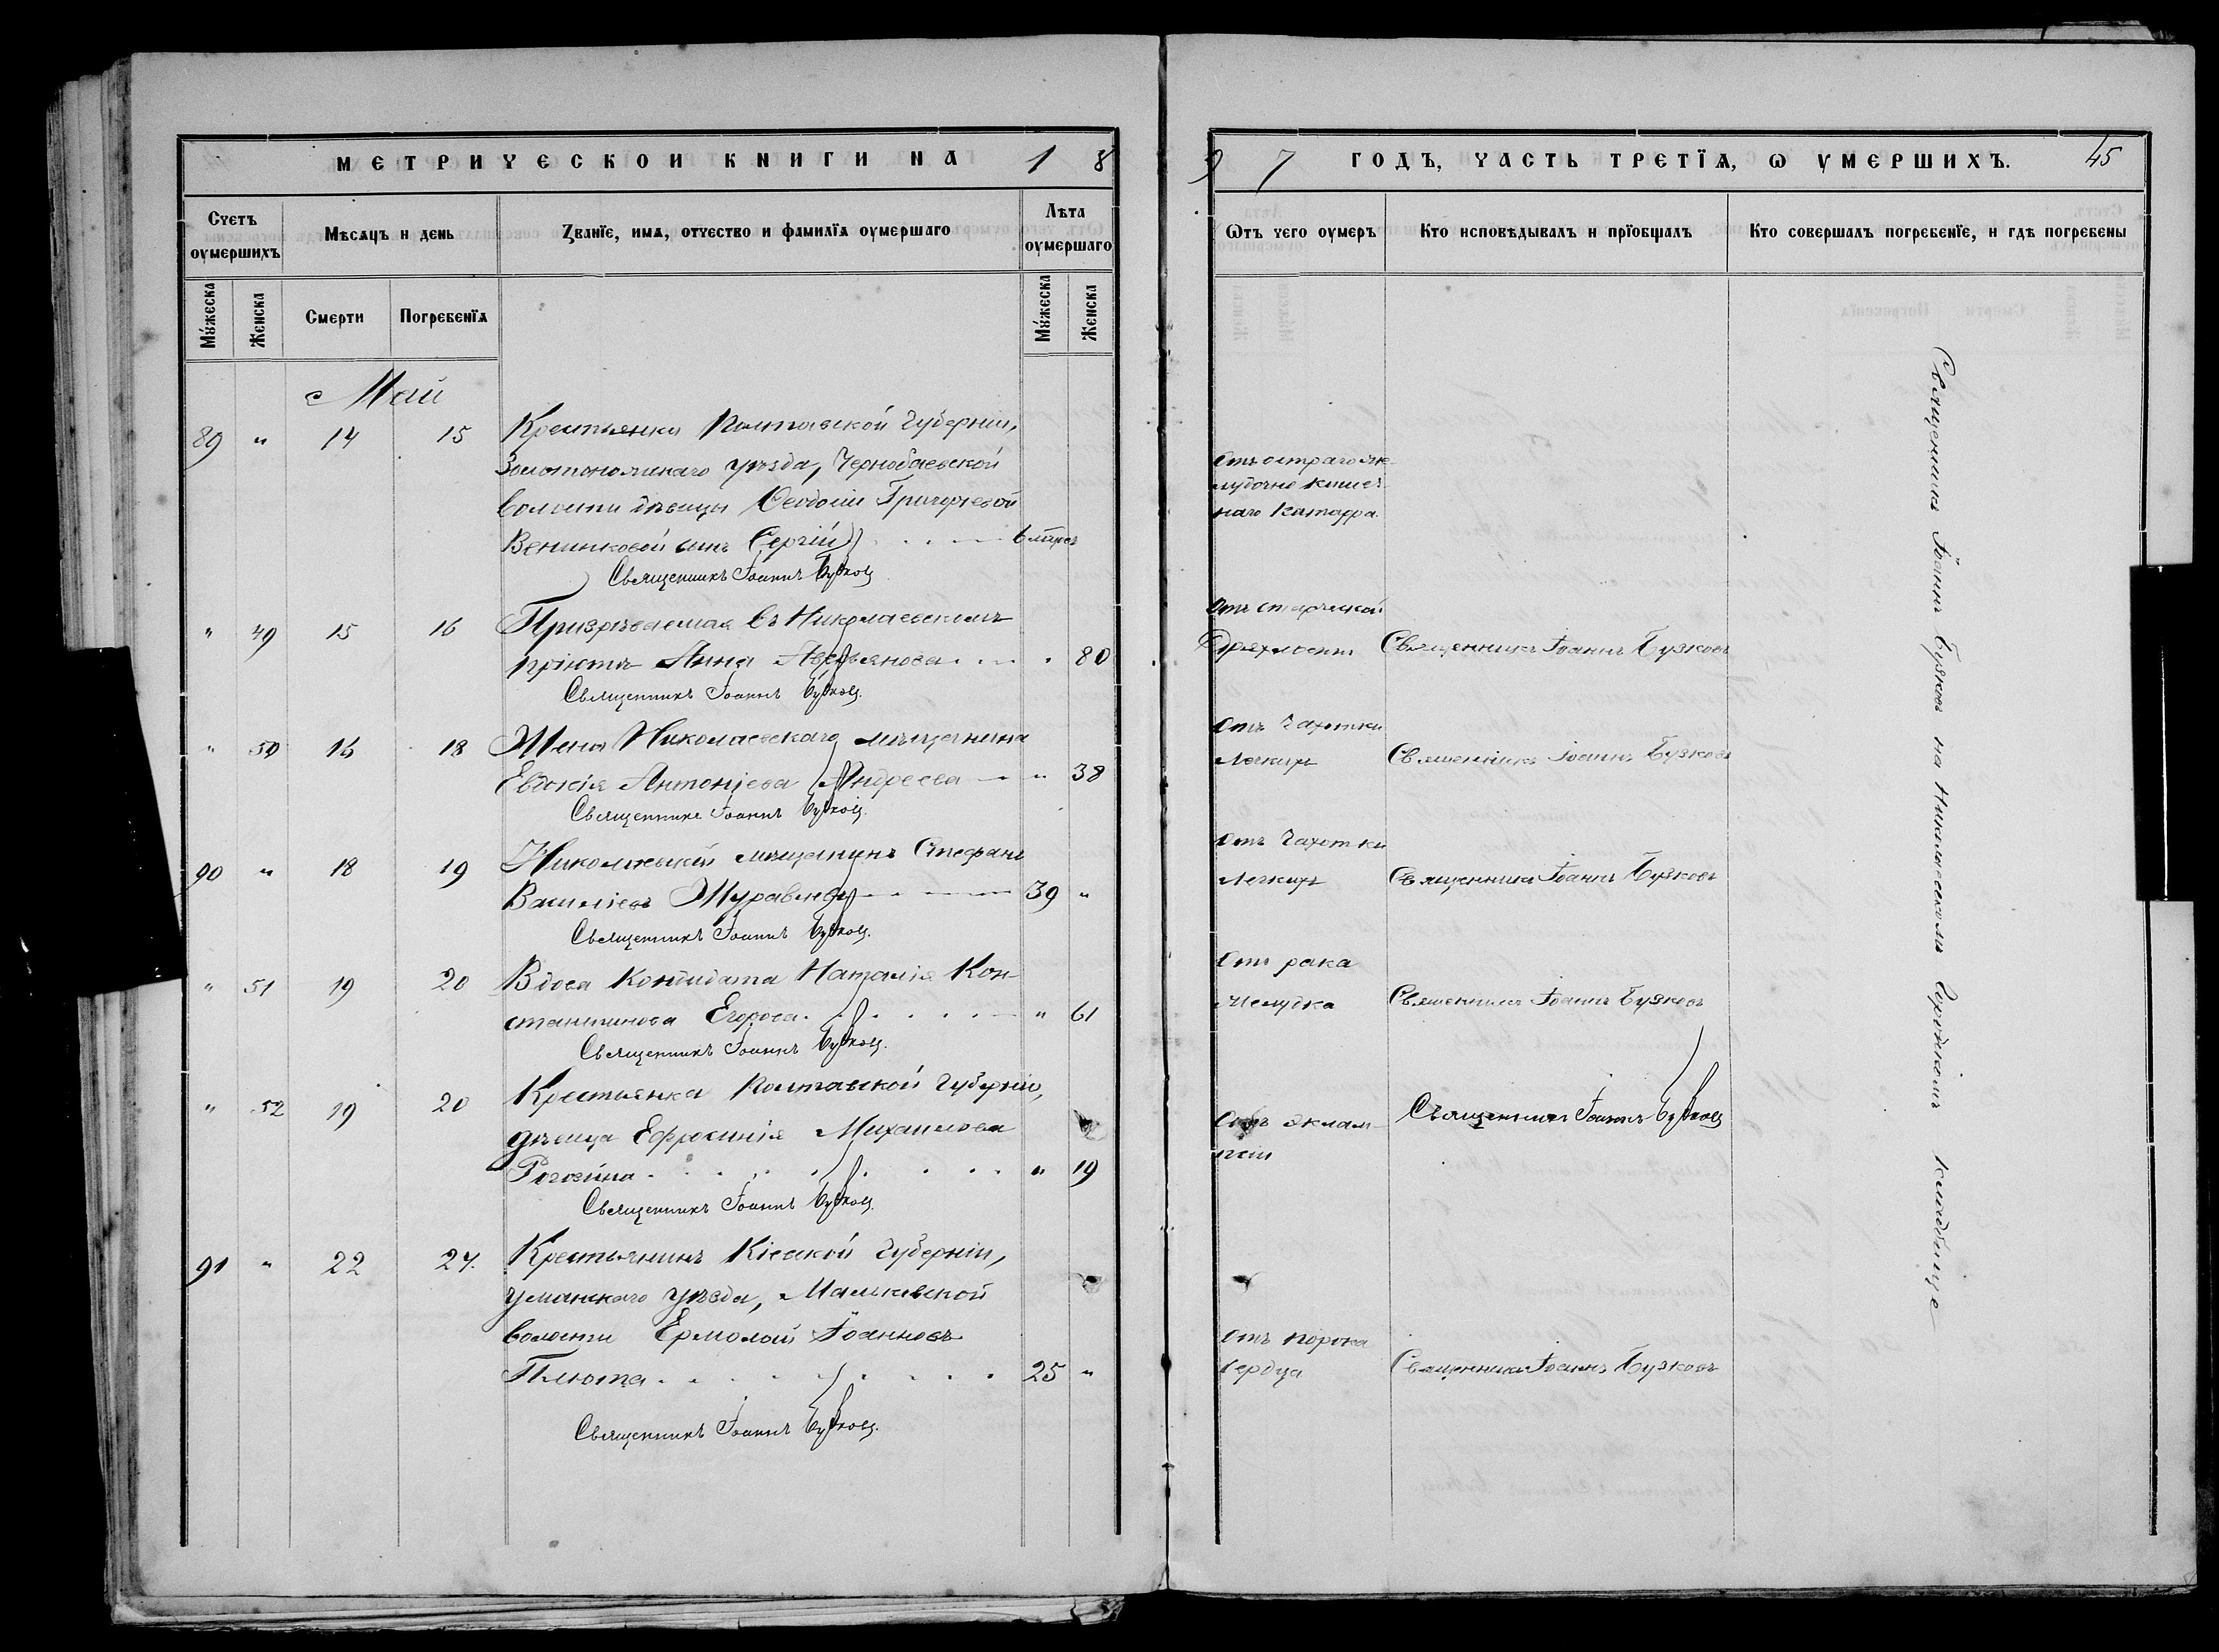 МЕТРИЧЕСКОЙ КНИГИ НА 1 8 9 7 ГОДЪ, ЧАСТЬ ТРЕТІѦ, Ѡ ѸМЕРШИХЪ. 45
Счетъ оумершихъ
Мѣсѧцъ и день
Званїе, имѧ, отчество и фамилїѧ оумершаго
Лѣта оумершаго
Ѡтъ чего оумеръ
Кто исповѣдывалъ и прїобщалъ
Кто совершалъ погребенїе, и гдѣ погребены
Мужеска
Женска
Смерти
Погребенїѧ
Мужеска
Женска
Май
89 " 14 15 Крестьянки Полтавской губерніи,
Золотоношскаго уѣзда, Чернобаевской
волости дѣвицы Ѳеодосіи Григорьевой
сынъ Сергій 6
Священникъ Іоаннъ Бузковъ
Отъ остраго же-
лудочно кишеч-
наго катарра.
" 49 15 16 Призрѣваемая въ Николаевскомъ
пріютѣ Анна Аверьянова " 80
Священникъ Іоаннъ Бузковъ.
Отъ старческой
дряхлости Священникъ Іоаннъ Бузковъ
" 50 16 18 Жена Николаевскаго мѣщанина
Евдокія Антоніева Андреева " 38
Священникъ Іоаннъ Бузковъ.
Отъ чахотки
легкихъ Священникъ Іоаннъ Бузковъ
90 " 18 19 Николаевскій мѣщанинъ Стефанъ
Василіевъ Журавлевъ 39 "
Священникъ Іоаннъ Бузковъ.
Отъ чахотки
легкихъ Священникъ Іоаннъ Бузковъ
" 51 19 20 Вдова кондидата Наталія Кон-
стантинова Егорова " 61
Священникъ Іоаннъ Бузковъ.
Отъ рака
желудка Священникъ Іоаннъ Бузковъ
" 52 19 20 Крестьянка Полтавской губерніи,
дѣвица Ефросинія Михаилова
" 19
Священникъ Іоаннъ Бузковъ.
Отъ эклам-
псіи Священникъ Іоаннъ Бузковъ
91 " 22 24. Крестьянинъ Кіевской губерніи,
Уманскаго уѣзда, Маньковской
волости Ермолай Іоанновъ
Плюта 25 "
Священникъ Іоаннъ Бузковъ.
Отъ порока
сердца Священникъ Іоаннъ Бузковъ
Священникъ Іоаннъ Бузковъ на Николаевскомъ городскомъ кладбище